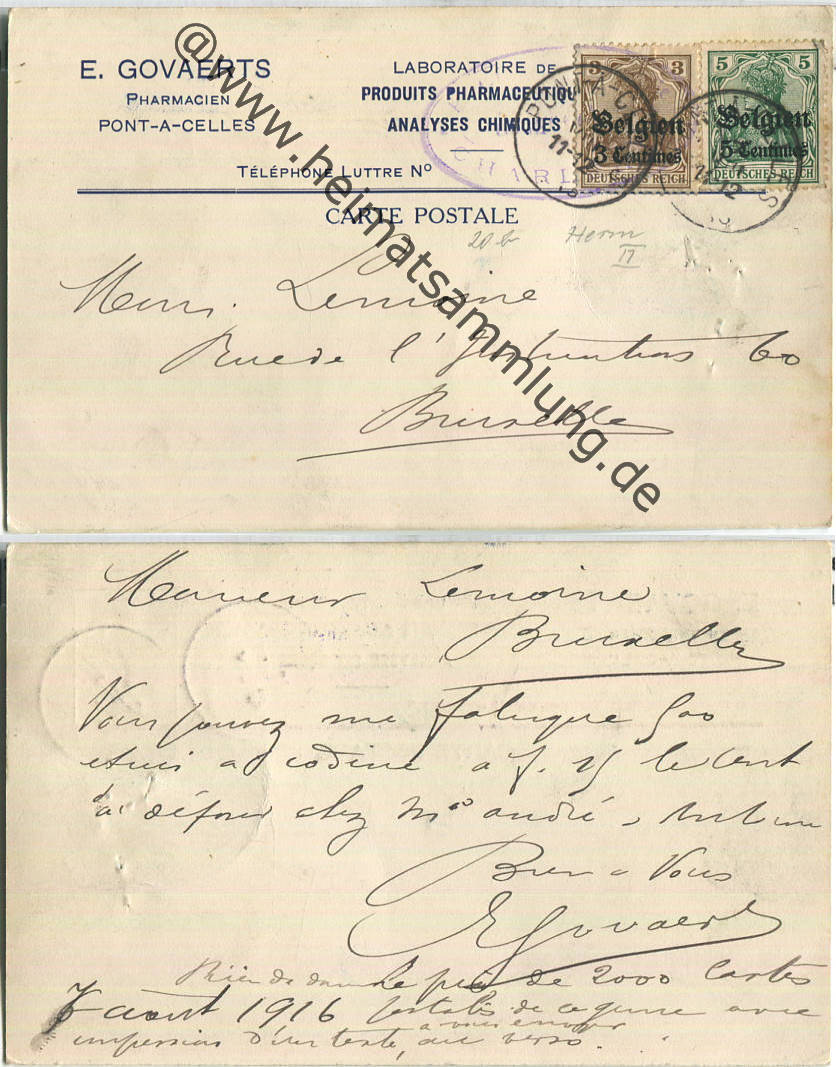 E. GOVAERTS
PHARMACIEN
PONT-A-CELLES
LABORATOIRE DE
PRODUITS PHARMACEUTIQU
ANALYSES CHIMIQUES
TÉLÉPHONE LUTTRE No
CARTE POSTALE
3 3
Belgien
3 Centimes
DEUTSCHES REICH
5 5
Belgien
5 Centimes
DEUTSCHES REICH
20 b
II
Mons. Lemoine
Rue de l' 60
Bruxelles
@www.heimatsammlung.de
Monsieur Lemoine
Bruxelles
Vous pouvez me fabriquer 500
etuis a codine a f. le cent
à déposer chez Mr andré,
Bien a Vous
EGovaerts
Prière de de 2000 Cartes
7 aout 1916 postales de ce genre avec
a nous envoyer
impression d'un texte au verso.